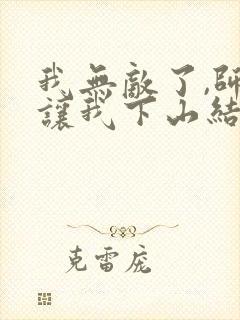 我無敵了,師
讓我下山結
克雷庞